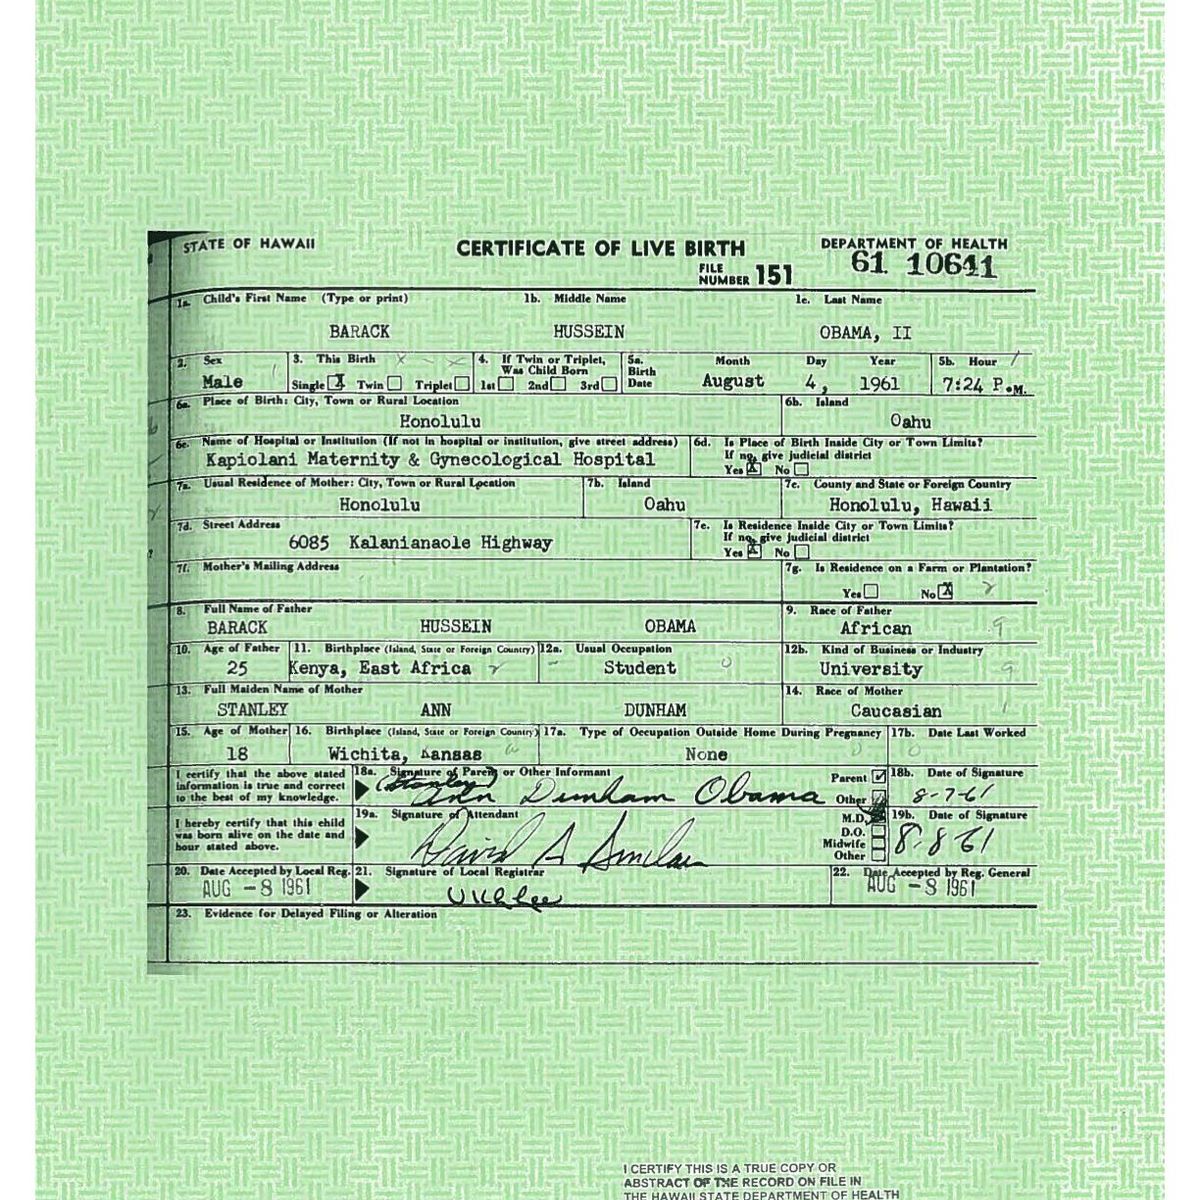 STATE OF HAWAII
CERTIFICATE OF LIVE BIRTH
DEPARTMENT OF HEALTH
FILE NUMBER 151
61 10641
1a. Child's First Name (Type or print) 1b. Middle Name 1c. Last Name
BARACK HUSSEIN OBAMA, II
2. Sex 3. This Birth 4. If Twin or Triplet, Was Child Born 5a. Birth Date Month Day Year 5b. Hour
Male Single X Twin Triplet 1st 2nd 3rd August 4, 1961 7:24 P.M.
6a. Place of Birth: City, Town or Rural Location 6b. Island
Honolulu Oahu
6c. Name of Hospital or Institution (If not in hospital or institution, give street address) 6d. Is Place of Birth Inside City or Town Limits?
If no, give judicial district
Kapiolani Maternity & Gynecological Hospital Yes X No
7a. Usual Residence of Mother: City, Town or Rural Location 7b. Island 7c. County and State or Foreign Country
Honolulu Oahu Honolulu, Hawaii
7d. Street Address 7e. Is Residence Inside City or Town Limits?
If no, give judicial district
6085 Kalanianaole Highway Yes X No
7f. Mother's Mailing Address 7g. Is Residence on a Farm or Plantation?
Yes No X
8. Full Name of Father 9. Race of Father
BARACK HUSSEIN OBAMA African
10. Age of Father 11. Birthplace (Island, State or Foreign Country) 12a. Usual Occupation 12b. Kind of Business or Industry
25 Kenya, East Africa Student University
13. Full Maiden Name of Mother 14. Race of Mother
STANLEY ANN DUNHAM Caucasian
15. Age of Mother 16. Birthplace (Island, State or Foreign Country) 17a. Type of Occupation Outside Home During Pregnancy 17b. Date Last Worked
18 Wichita, Kansas None
I certify that the above stated
information is true and correct
to the best of my knowledge.
18a. Signature of Parent or Other Informant Parent Other 18b. Date of Signature
(Stanley) Ann Dunham Obama 8-7-61
I hereby certify that this child
was born alive on the date and
hour stated above.
19a. Signature of Attendant M.D. D.O. Midwife Other 19b. Date of Signature
David A Sinclair 8-8-61
20. Date Accepted by Local Reg. 21. Signature of Local Registrar 22. Date Accepted by Reg. General
AUG -8 1961 AUG -8 1961
23. Evidence for Delayed Filing or Alteration
I CERTIFY THIS IS A TRUE COPY OR
ABSTRACT OF THE RECORD ON FILE IN
THE HAWAII STATE DEPARTMENT OF HEALTH